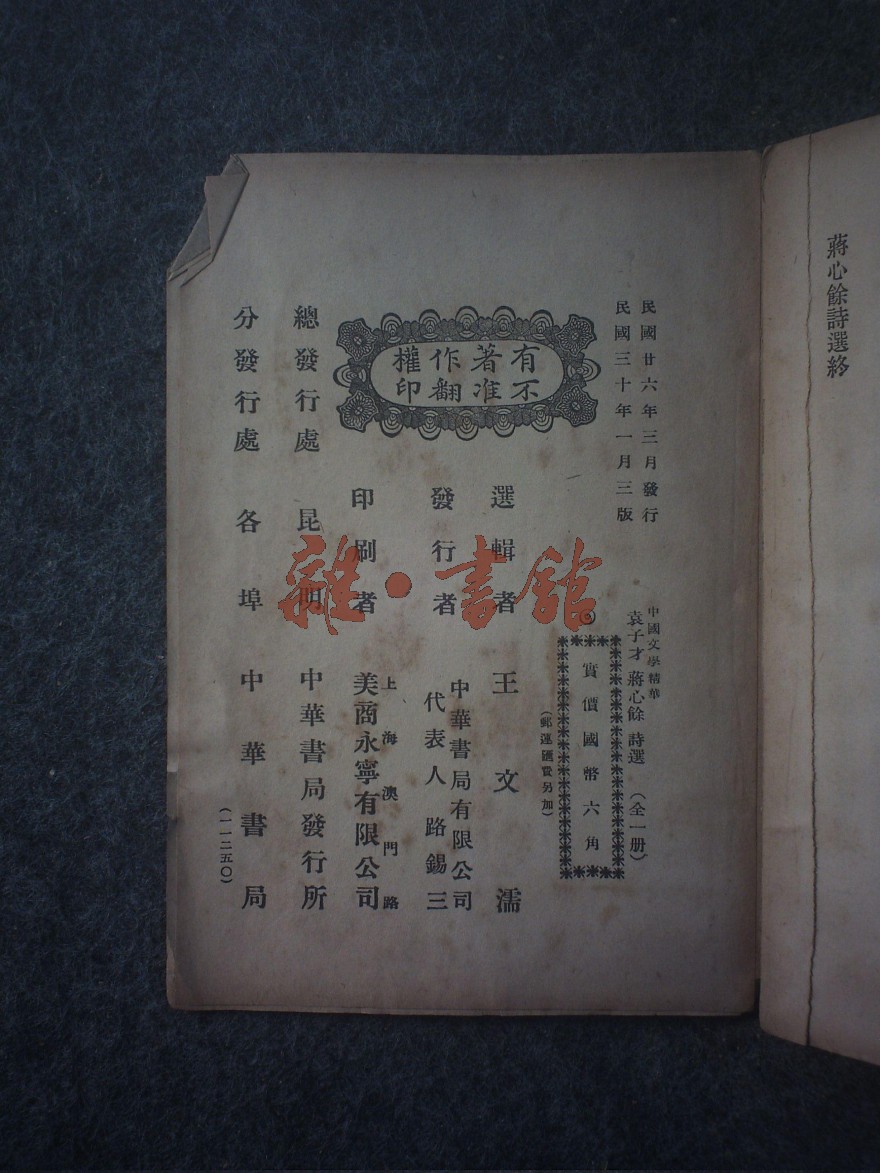 蔣心餘詩選終
民國廿六年三月發行
民國三十年一月三版
中國文學精華
袁子才 蔣心餘 詩選 (全一册)
實價國幣六角
(郵運匯費另加)
有著作權
不准翻印
選輯者 王文濡
發行者 中華書局有限公司
代表人路錫三
印刷者 上海澳門路
美商永寧有限公司
總發行處 昆明 中華書局發行所
分發行處 各埠中華書局
(一一二五〇)
雜·書館